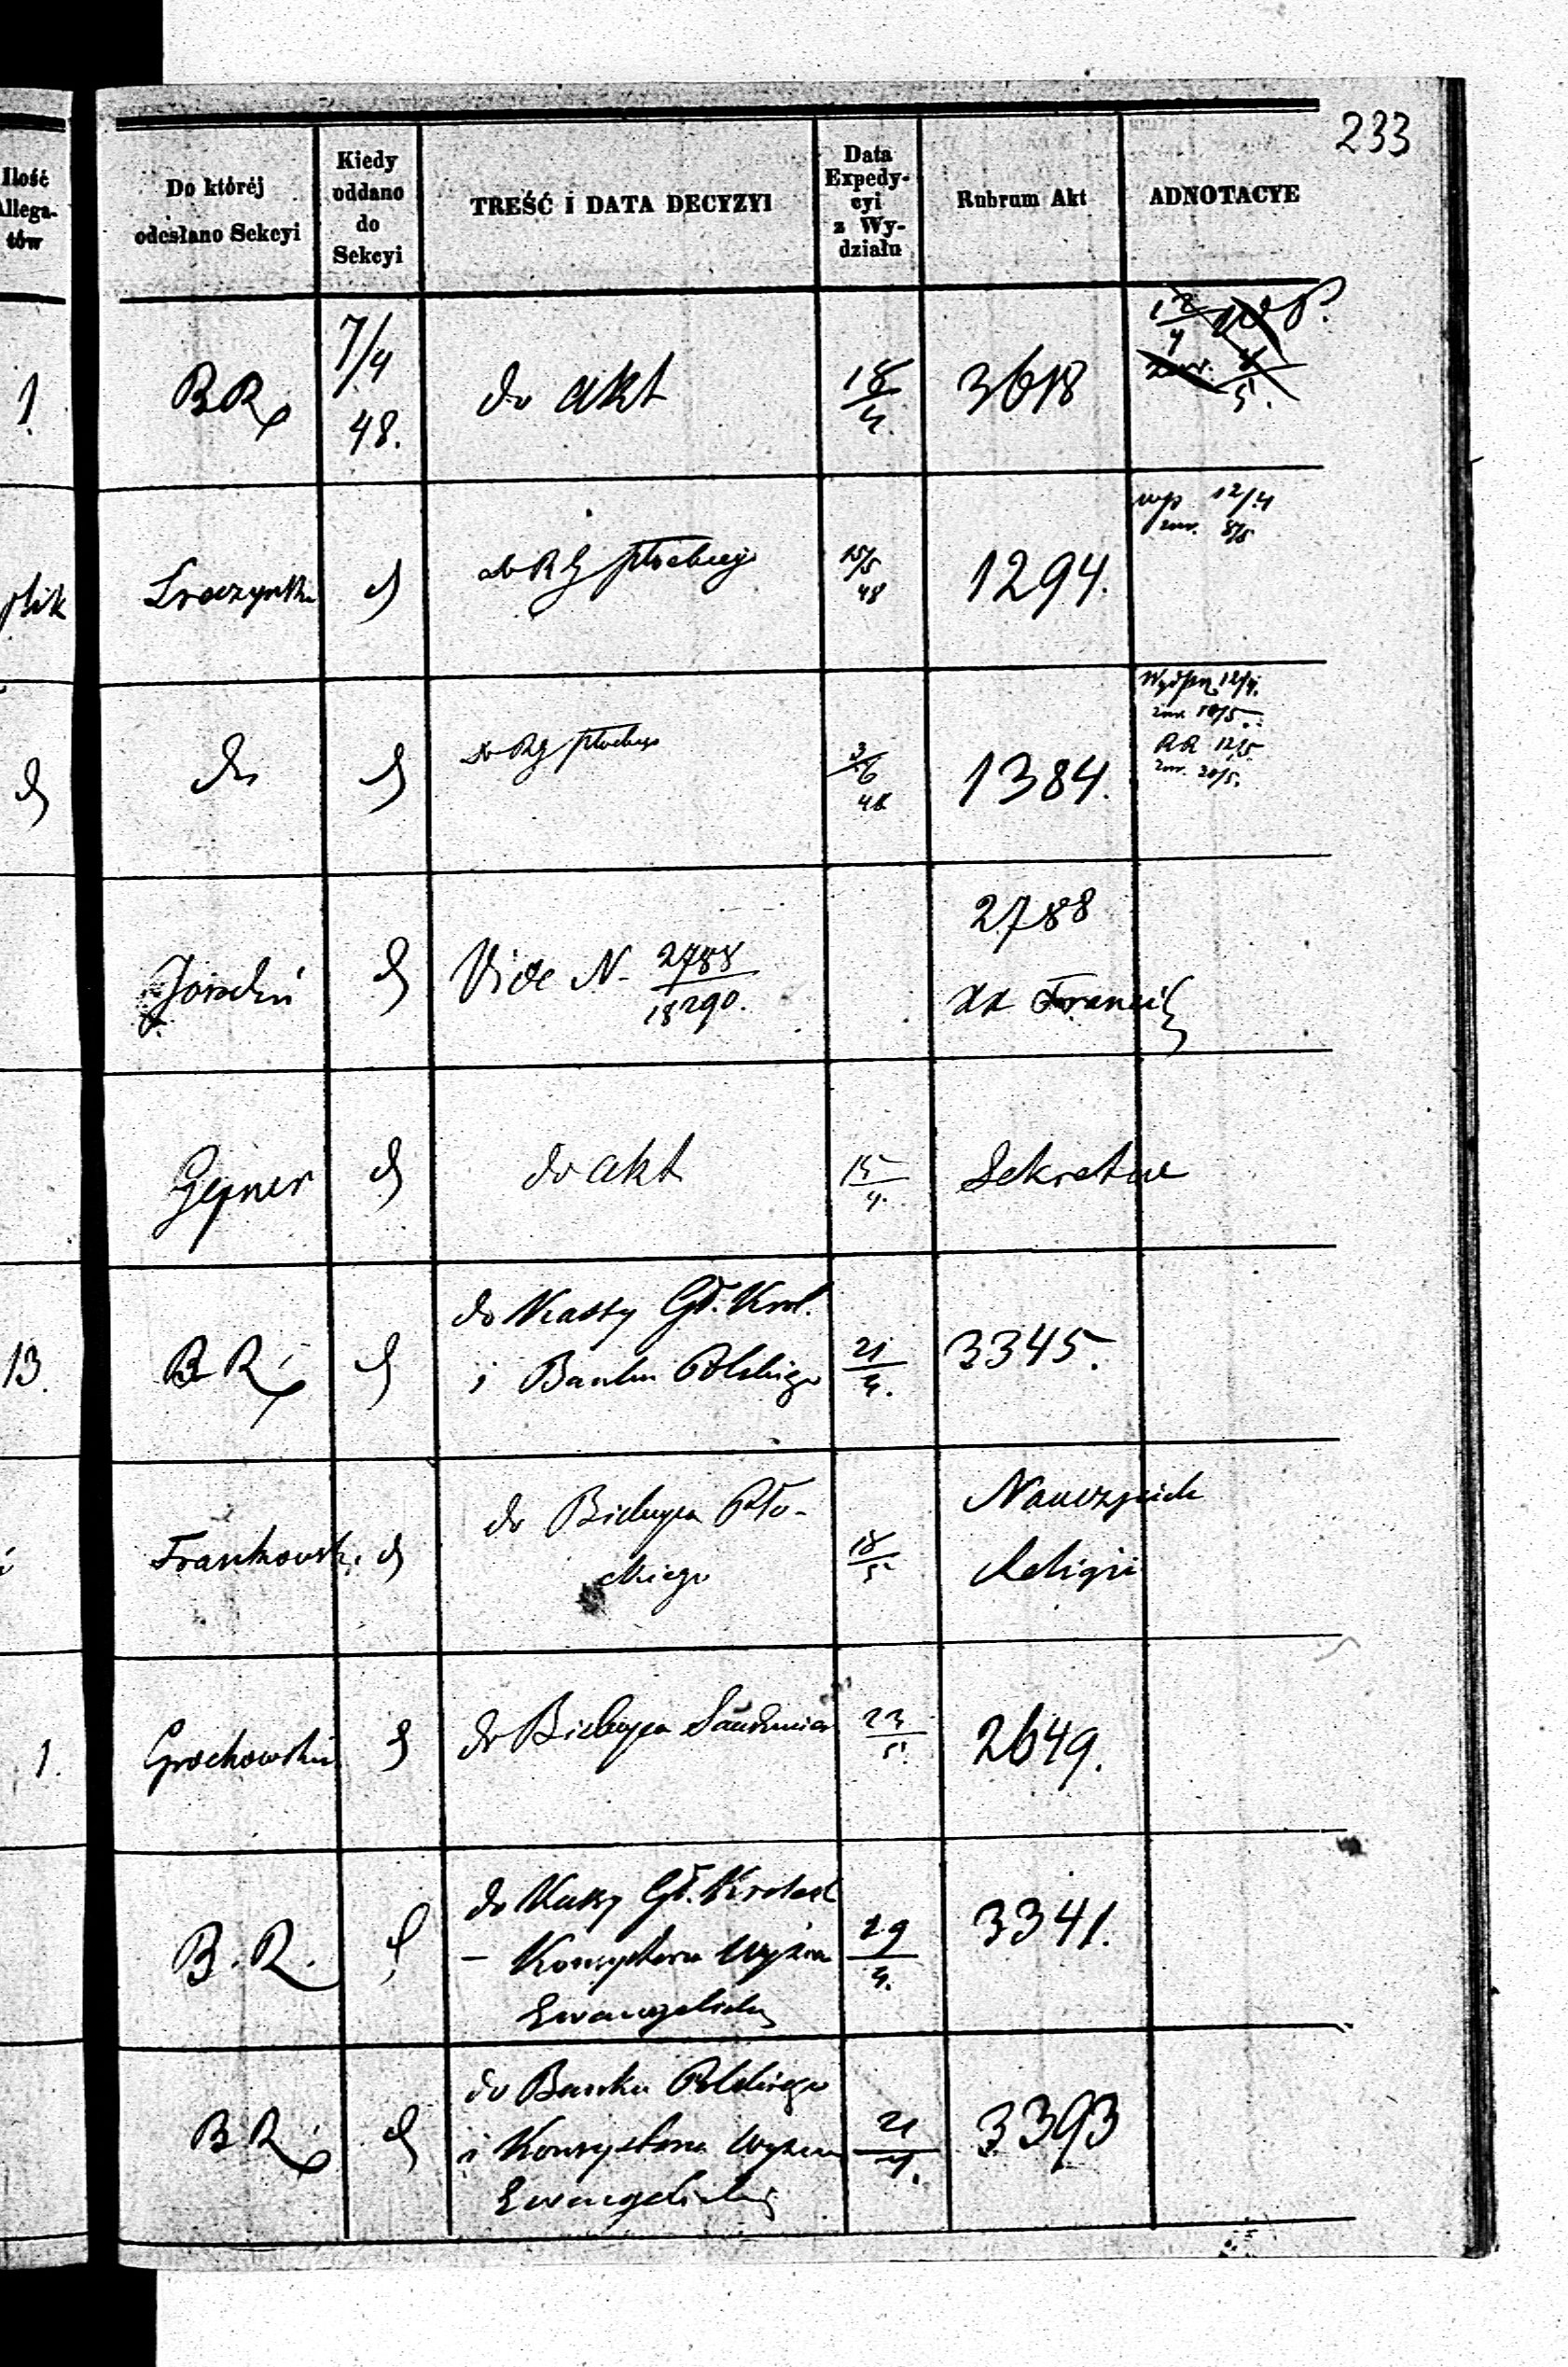 233
Ilość Allega- tów
Do któréj odesłano Sekcyi
Kiedy oddano do Sekcyi
TREŚĆ I DATA DECYZYI
Data Expedy- cyi z Wy- działu
Rubrum Akt
ADNOTACYE
1. BR 7/4 48. do akt 18/4. 3618 12/4
d 15/5 48 1294. wyp 12/4
zwr. 8/5
do d 3/6 48 1384. 12/4.
zwr 10/5.
RR 12/5
zwr. 20/5.
d Vide N. 2788/18290. 2788
XX
d do akt 15/4.
13. BR d do Kassy Gł. Krol.
i Banku Polskiego 21/4. 3345.
Frankowski d do Biskupa Pło-
ckiego 18/5 Nauczyciele
Religii
1. Grochowski d do Biskupa Sandomier 23/5. 2649.
B. R. d do Kassy Gł. Krolest
– Konsystorza Wyżsia
Ewangelickie 29/4. 3341.
BR d do Banku Polskiego
i Konsystorza
Ewangelickie 21/4. 3393